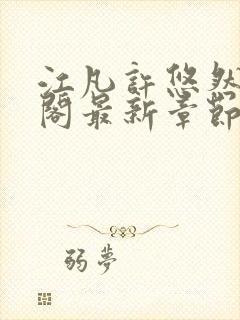 江凡許悠然
閣最新章節
弱夢